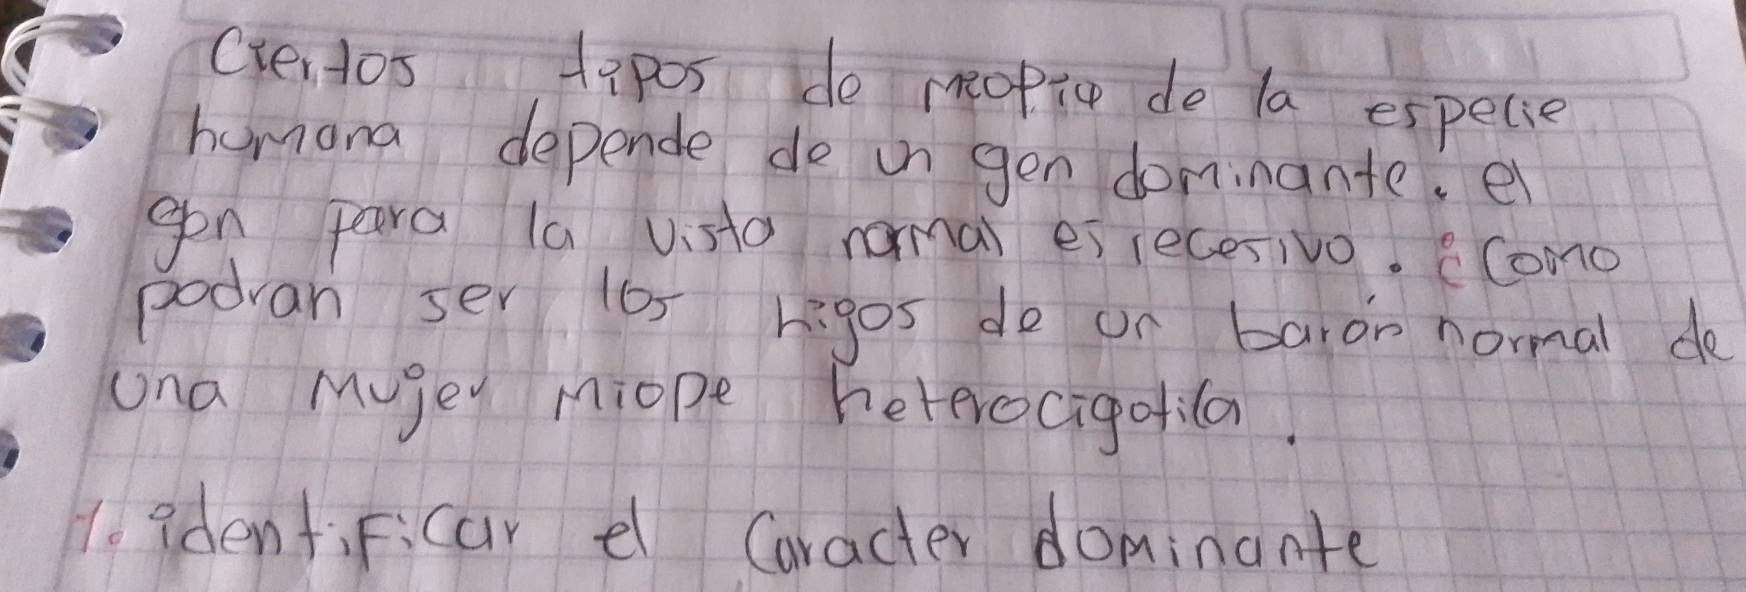 Ciertos tipos de miopia de la especie
humana depende de un gen dominante. el
gen para la vista normal es recesivo. ¿Como
podran ser los higos de un barón normal de
una Mujer Miope heterocigotica.
1. identificar el Caracter dominante